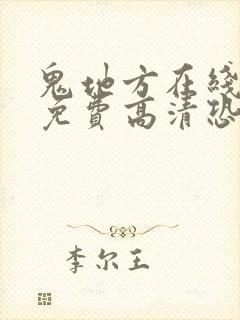 鬼地方在线
免费高清恐
李尔王